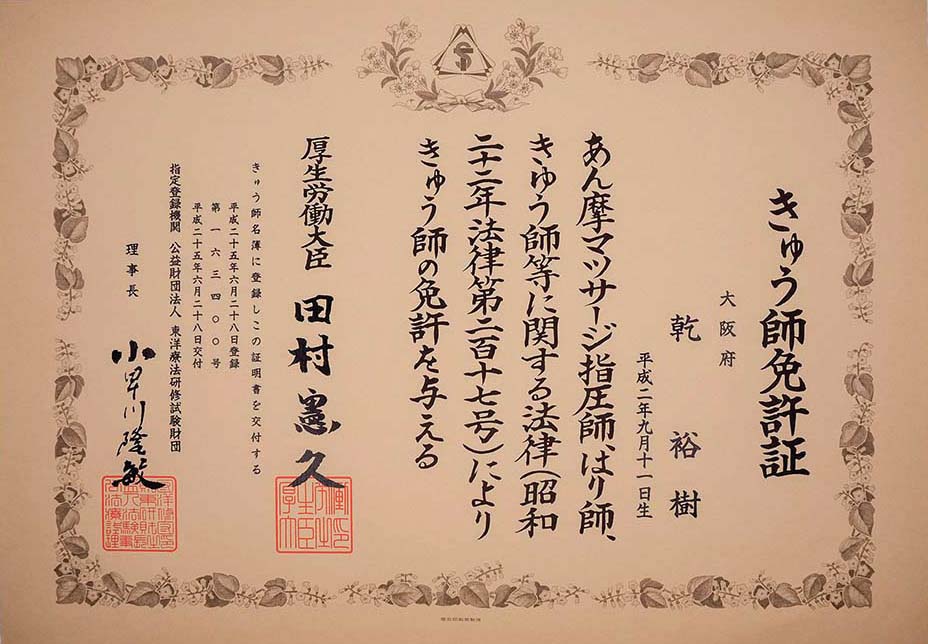 きゅう師免許証
大阪府
乾裕樹
平成二年九月十一日生
あん摩マツサージ指圧師、はり師、
きゆう師等に関する法律(昭和
二十二年法律第二百十七号)により
きゅう師の免許を与える
厚生労働大臣 田村憲久
きゅう師名簿に登録しこの証明書を交付する
平成二十五年六月二十八日登録
第一六三四〇〇号
平成二十五年六月二十八日交付
指定登録機関 公益財団法人 東洋療法研修試験財団
理事長 小早川隆敏